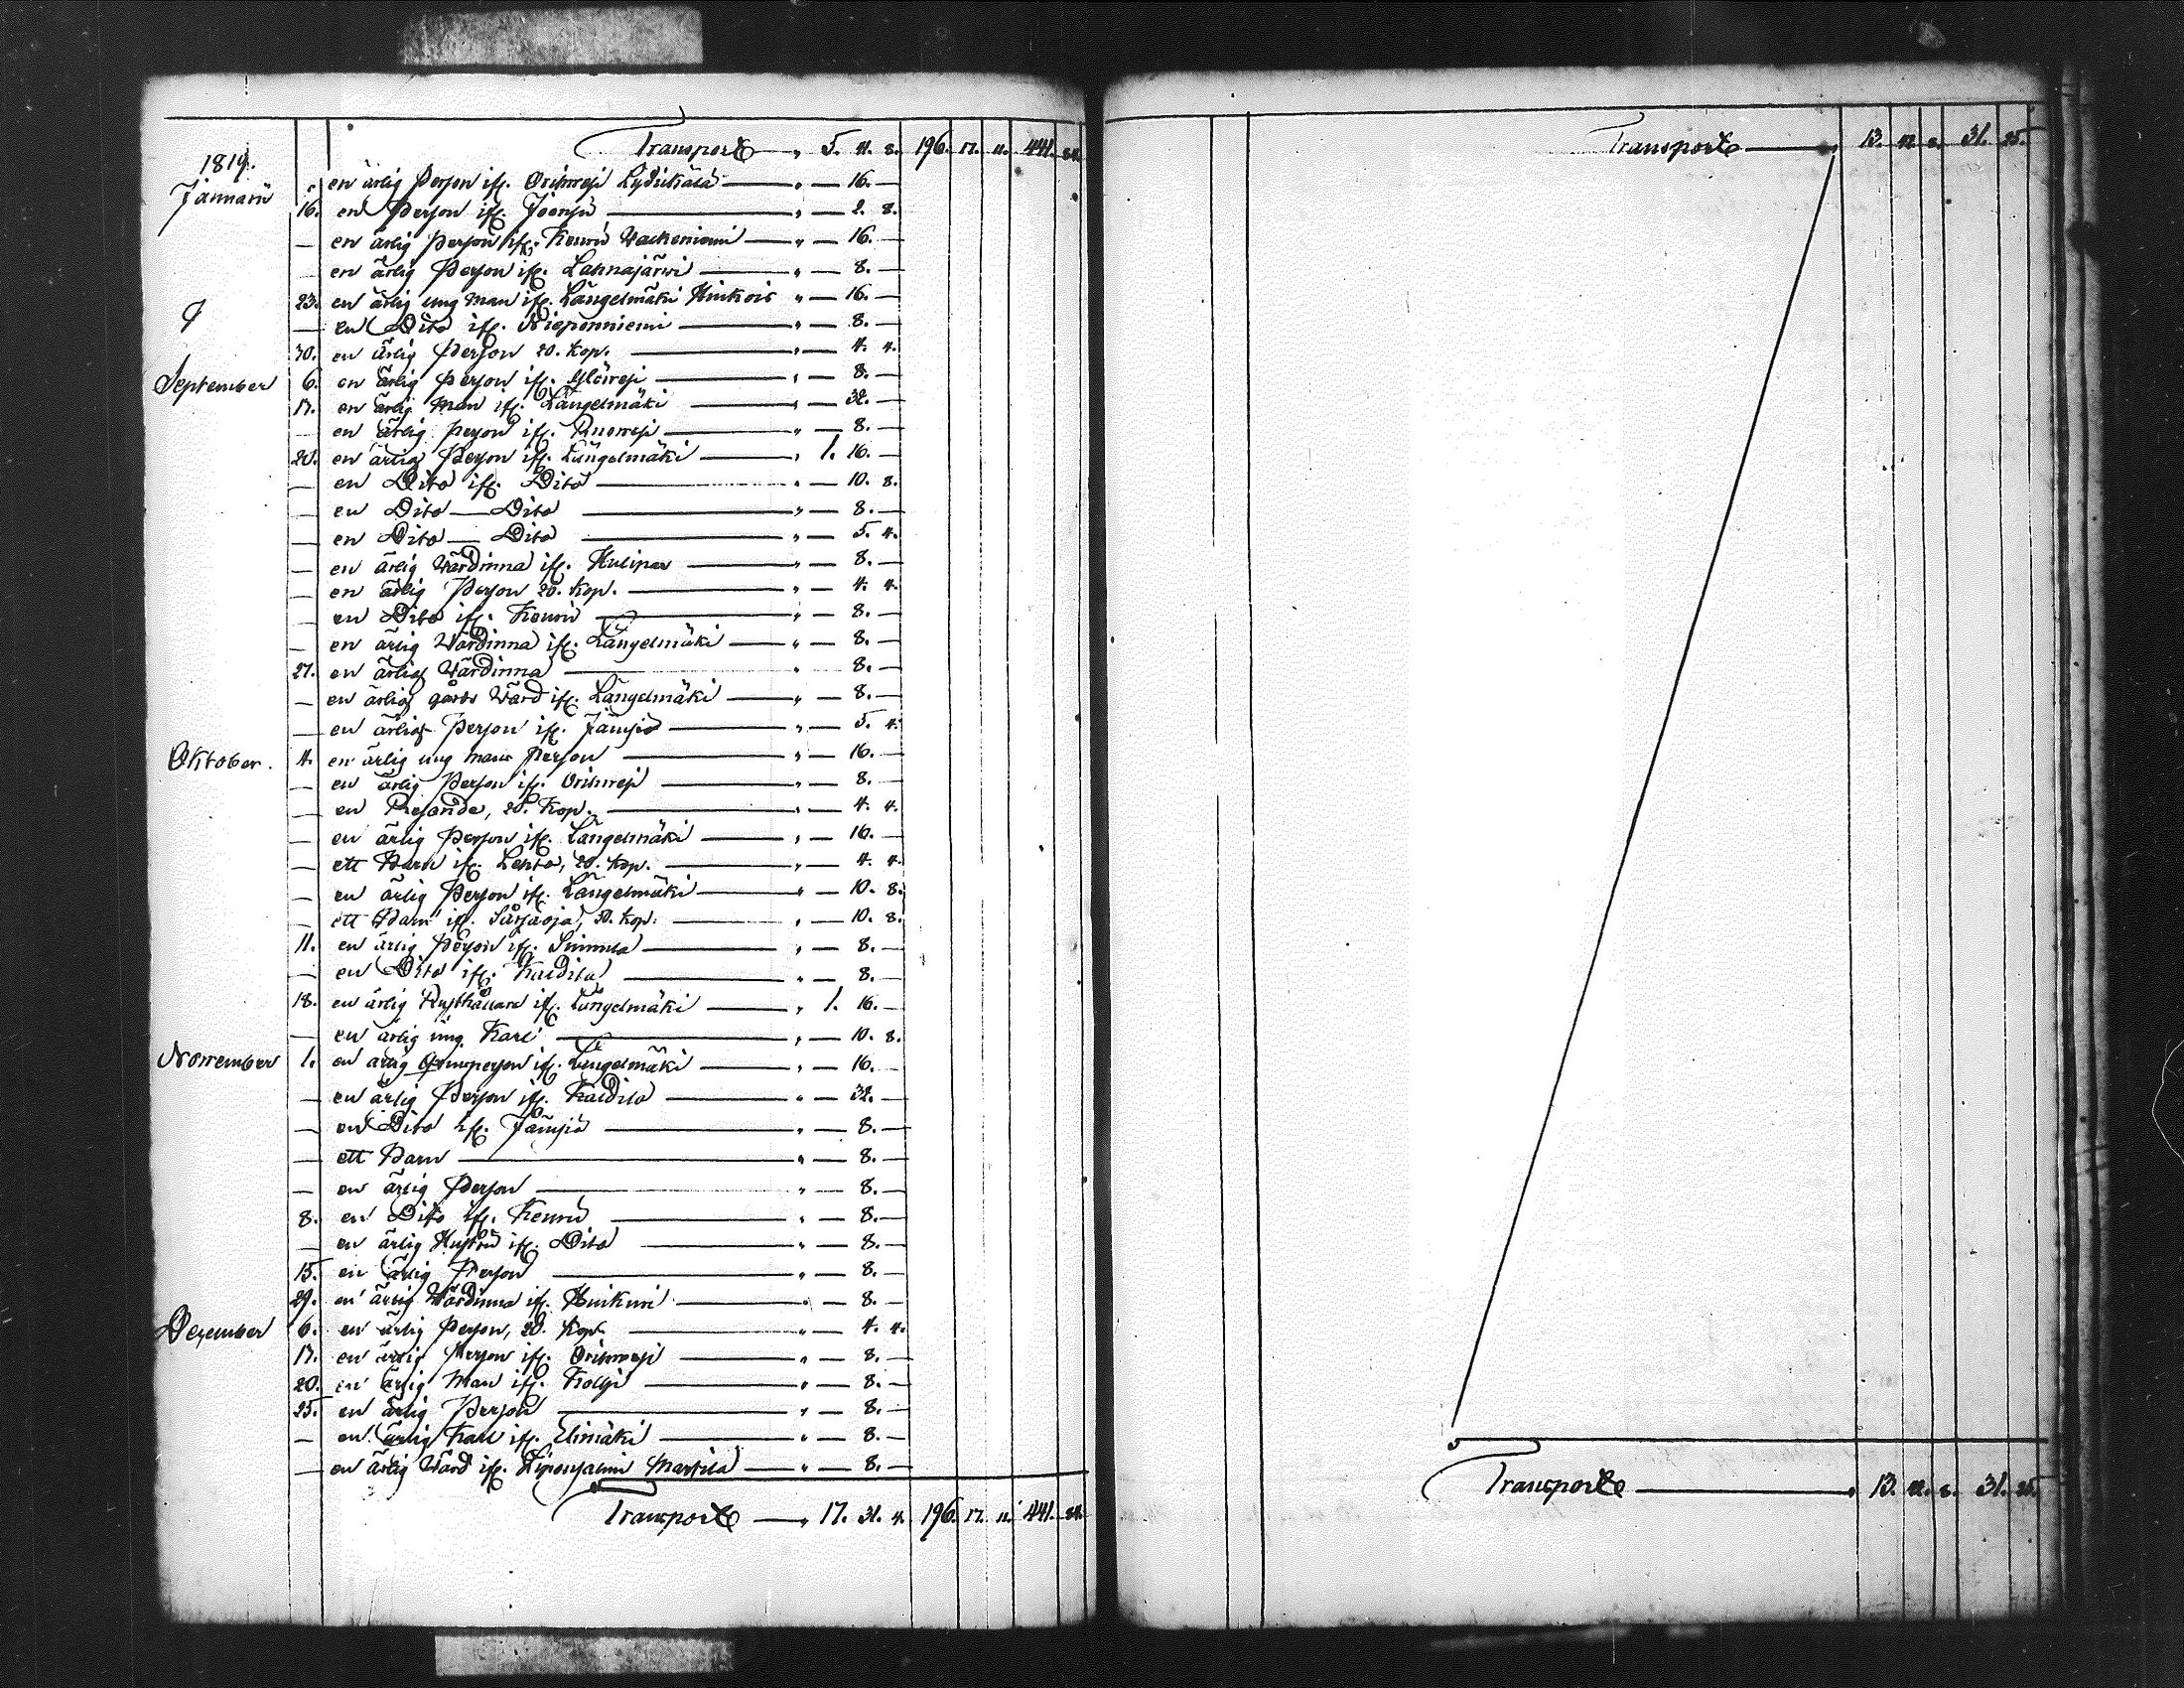 Transport — " 5. 41. 8. 196. 17. 11. 441. 84.
1819.
Januarii
en ärlig Person ifr. Orihwesi Lyditälä — " — 16. —
16. en Person ifr. Joensu — " — 2. 8.
— en ärlig Person ifr. Keuru Wackeniemi — " — 16. —
— en ärlig Person ifr. Lahnajärwi — " — 8. —
23. en ärlig ung Man ifr. Längelmäki — " — 16. —
— en Dito ifr. — " — 8. —
30. en ärlig Person 20. kop. — " — 4. 4.
September 6. en ärlig Person ifr. — " — 8. —
17. en ärlig Man ifr. Längelmäki — " — 32. —
— en ärlig Person ifr. Ruowesi — " — 8. —
20. en ärlig Person ifr. Längelmäki — " 1. 16. —
— en Dito ifr. Dito — " — 10. 8.
— en Dito — Dito — " — 8. —
— en Dito — Dito — " — 5. 4.
— en ärlig Wärdinna ifr. — " — 8. —
— en ärlig Person 20. kop. — " — 4. 4.
— en Dito ifr. Keuru — " — 8. —
— en ärlig Wärdinna ifr. Längelmäki — " — 8. —
27. en ärlig Wärdinna — " — 8. —
— en ärlig gårds Wärd ifr. Längelmäki — " — 8. —
— en ärlig Person ifr. Jämsiö — " — 5. 4.
Oktober. 4. en ärlig ung mans Person — " — 16. —
— en ärlig Person ifr. Orihwesi — " — 8. —
— en Resande, 20. Kop. — " — 4. 4.
— en ärlig Person ifr. Längelmäki — " — 16. —
— ett Barn ifr. Lehto, 20. kop. — " — 4. 4.
— en ärlig Person ifr. Längelmäki — " — 10. 8.
— ett Barn ifr. 50. kop. — " — 10. 8.
11. en ärlig Person ifr. Simmula — " — 8. —
— en Dito ifr. Kaldila — " — 8. —
18. en ärlig Rusthållare ifr. Längelmäki — " 1. 16. —
— en ärlig ung Karl — " — 10. 8.
November 1. en ärlig Qwinsperson ifr. Längelmäki — " — 16. —
— en ärlig Person ifr. Kaldila — " — 32. —
— en Dito ifr. Jämsiö — " — 8. —
— ett Barn — " — 8. —
— en ärlig Person — " — 8. —
8. en Dito ifr. Keuru — " — 8. —
— en ärlig Hustru ifr. Dito — " — 8. —
15. en ärlig Person — " — 8. —
29. en ärlig Wärdinna ifr. — " — 8. —
Dezember 6. en ärlig Person, 20. Kop. — " — 4. 4.
17. en ärlig Person ifr. Orihwesi — " — 8. —
20. en ärlig Man ifr. — " — 8. —
25. en ärlig Person — " — 8. —
— en ärlig Karl ifr. Elimäki — " — 8. —
— en ärlig Wärd ifr. Martila — " — 8. —
Transport — " 17. 31. 4. 196. 17. 11. 441. 84.
Transport — " 13. 42. 8. 31. 25.
Transport — " 13. 42. 8. 31. 25.